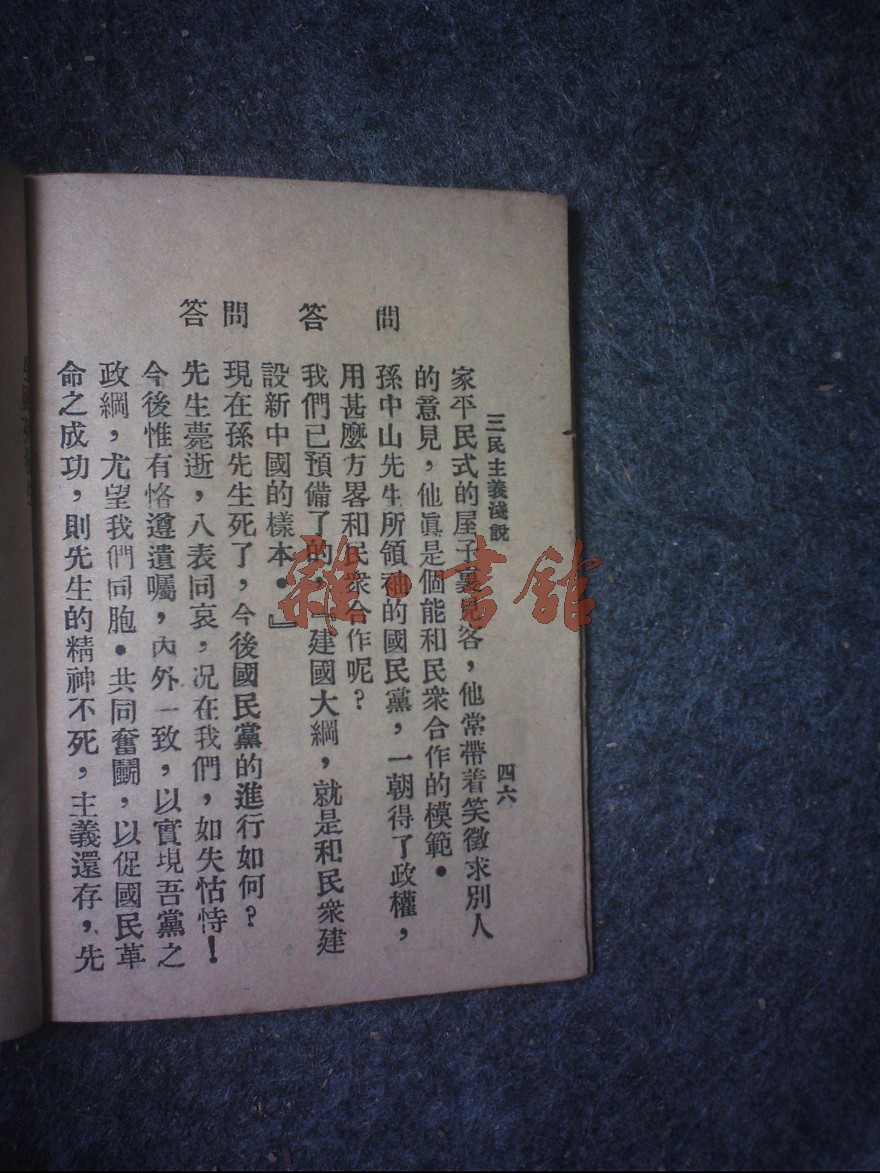 三民主義淺說　四六
家平民式的屋子裏見客，他常帶着笑徵求別人
的意見，他眞是個能和民衆合作的模範．
問　孫中山先生所領袖的國民黨，一朝得了政權，
用甚麼方畧和民衆合作呢？
答　我們已預備了的，『建國大綱，就是和民衆建
設新中國的樣本．』
問　現在孫先生死了，今後國民黨的進行如何？
答　先生薨逝，八表同哀，况在我們，如失怙恃！
今後惟有恪遵遺囑，內外一致，以實現吾黨之
政綱，尤望我們同胞．共同奮鬭，以促國民革
命之成功，則先生的精神不死，主義還存，先
雜·書館